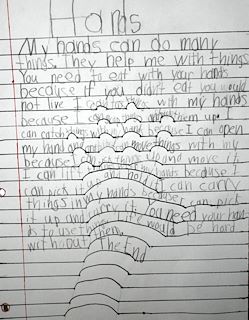 Hands
My hands can do many
things. They help me with things.
You need to eat with your hands
because if you didnt eat you would
not live I can with my hands
because I can them up I
can catch things with my hands because I can open
my hand and things with my
because I can things and move it.
I can lift and hold it can carry
things in my hands because I can pick
it up and carry it. You need your han
ds to use them, it would be hard
without. The End